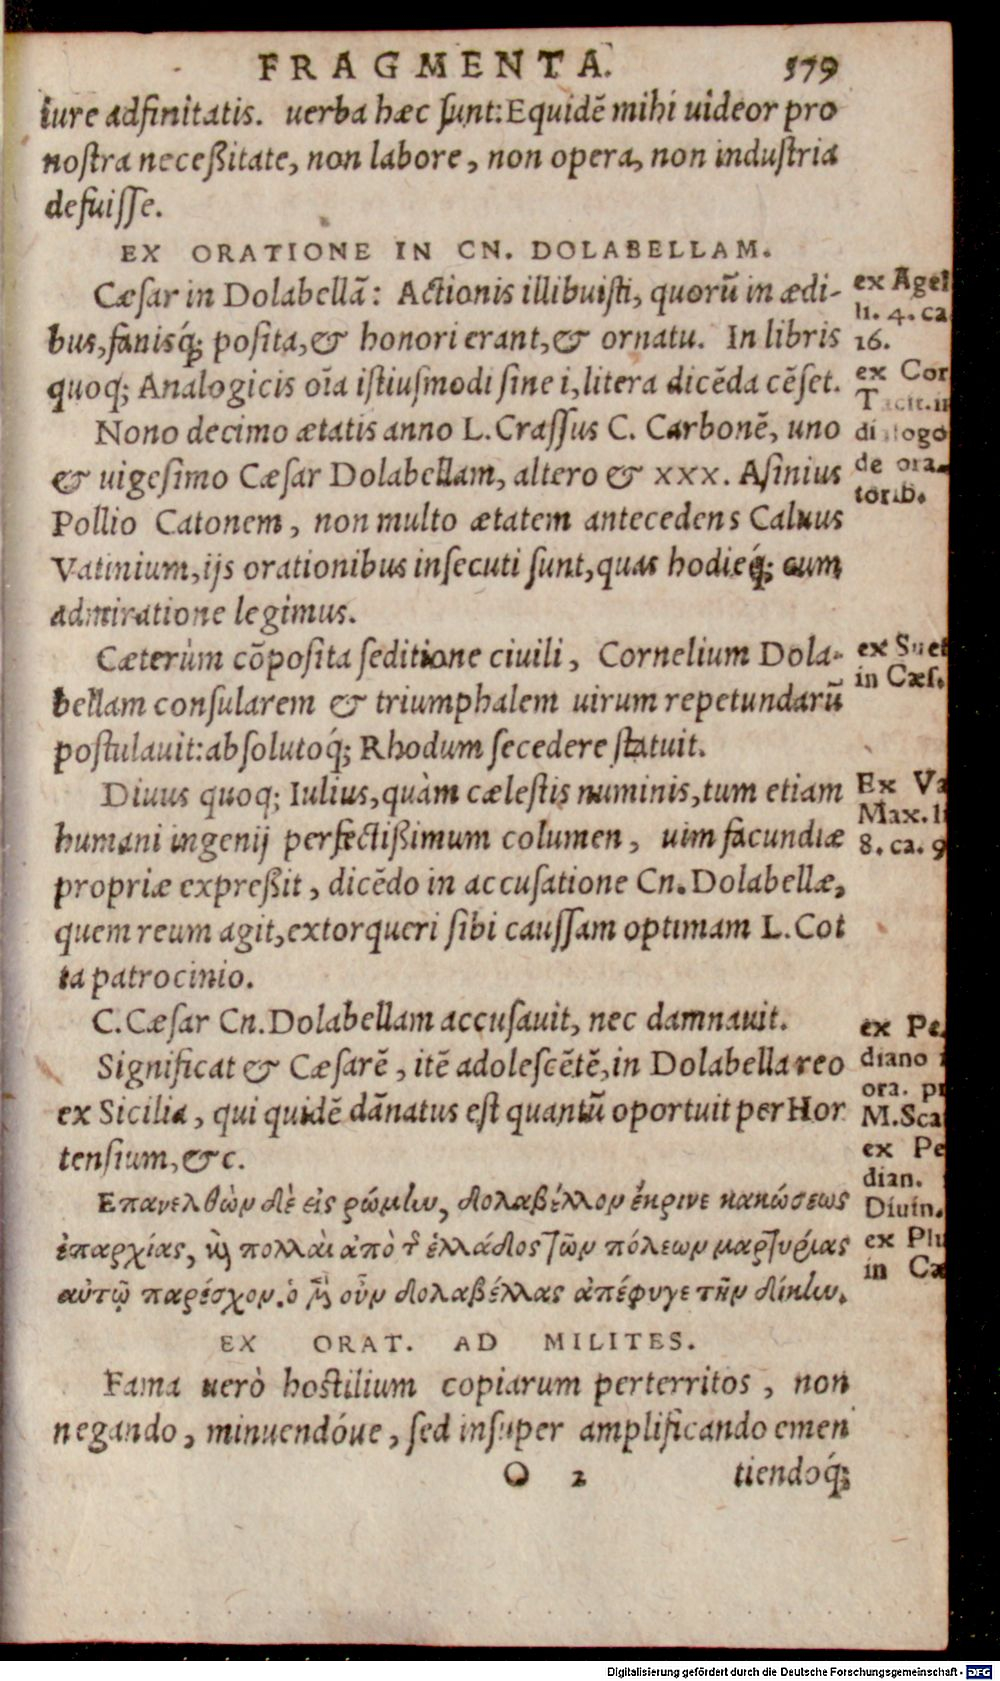 FRAGMENTA. 579
iure adfinitatis. uerba hæc sunt: Equidē mihi uideor pro
nostra neceßitate, non labore, non opera, non industria
defuisse.
EX ORATIONE IN CN. DOLABELLAM.
Cæsar in Dolabellā: Actionis illibuisti, quorū in ædi-
bus, fanisq́; posita, & honori erant, & ornatu. In libris
quoq; Analogicis oīa istiusmodi sine i, litera dicēda cēset.
ex Agel
li. 4. ca
16.
Nono decimo ætatis anno L. Crassus C. Carbonē, uno
& uigesimo Cæsar Dolabellam, altero & XXX. Asinius
Pollio Catonem, non multo ætatem antecedens Caluus
Vatinium, ijs orationibus insecuti sunt, quas hodieq́; cum
admiratione legimus.
ex Cor
Tacit. in
dialogo
de ora-
torib.
Cæterùm cōposita seditione ciuili, Cornelium Dola-
bellam consularem & triumphalem uirum repetundarū
postulauit: absolutoq́; Rhodum secedere statuit.
ex Suet
in Cæs.
Diuus quoq; Iulius, quàm cælestis numinis, tum etiam
humani ingenij perfectißimum columen, uim facundiæ
propriæ expreßit, dicēdo in accusatione Cn. Dolabellæ,
quem reum agit, extorqueri sibi caussam optimam L. Cot
ta patrocinio.
Ex Va
Max. li
8. ca. 9
C. Cæsar Cn. Dolabellam accusauit, nec damnauit.
Significat & Cæsarē, itē adolescētē, in Dolabella reo
ex Sicilia, qui quidē dānatus est quantū oportuit per Hor
tensium, &c.
ex Pe.
diano i
ora. pr
M. Sca
ex Pe
dian.
Diuin.
Επανελθὼν δὲ εἰς ῥώμἰω, δολαβέλλον ἔκρινε κακώσεως
ἐπαρχίας, ϗ πολλαὶ ἀπὸ τ̃ ἑλλάδος τῶν πόλεων μαρτυρίας
αὐτῷ παρέσχον. ὁ μ̃ οὖν δολαβέλλας ἀπέφυγε τὴν δίκἰω.
ex Plu
in Cæ
EX ORAT. AD MILITES.
Fama uerò hostilium copiarum perterritos, non
negando, minuendóue, sed insuper amplificando emen
O 2 tiendoq́;
Digitalisierung gefördert durch die Deutsche Forschungsgemeinschaft - DFG